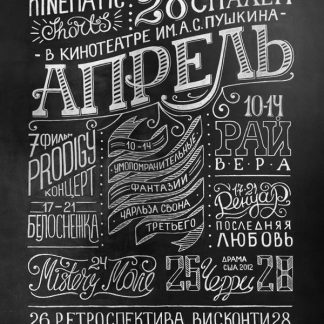 KINEMATIC
Shorts
28
- В КИНОТЕАТРЕ ИМ. А.С. ПУШКИНА -
АПРЕЛЬ
7 ФИЛЬМ
PRODIGY
КОНЦЕРТ
17-21
БЕЛОСНЕЖКА
10-14
УМОПОМРАЧИТЕЛЬНЫЕ
ФАНТАЗИИ
ЧАРЛЬЗА СВОНА
ТРЕТЬЕГО
10-14
РАЙ
ВЕРА
17-21
Ренуар
ПОСЛЕДНЯЯ
ЛЮБОВЬ
24
Mistery Movie
25 Черри 28
ДРАМА
США 2012
26 РЕТРОСПЕКТИВА ВИСКОНТИ 28